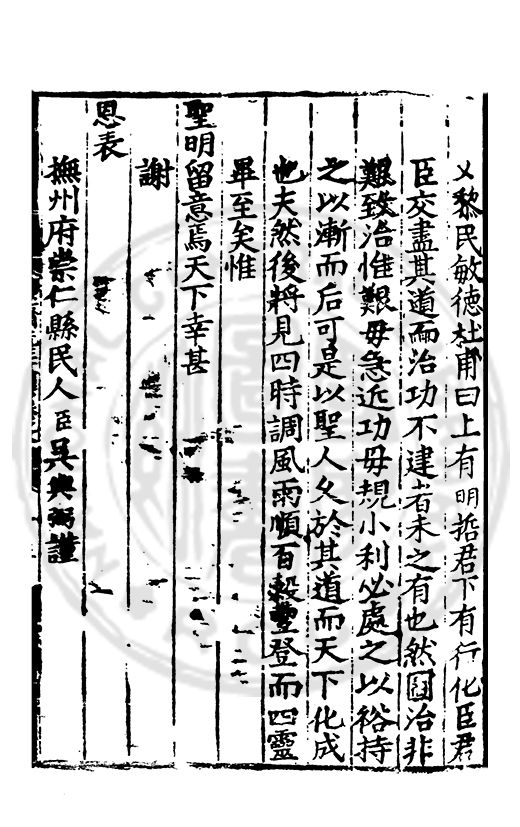 乂黎民敏德杜甫曰上有明哲君下有行化臣君
臣交盡其道而治功不建者未之有也然圖治非
艱致治惟艱毋急近功毋規小利必處之以裕持
之以漸而后可是以聖人久於其道而天下化成
也夫然後將見四時調風雨順百穀豐登而四靈
畢至矣惟
聖明留意焉天下幸甚
謝
恩表
撫州府崇仁縣民人臣吳與弼謹